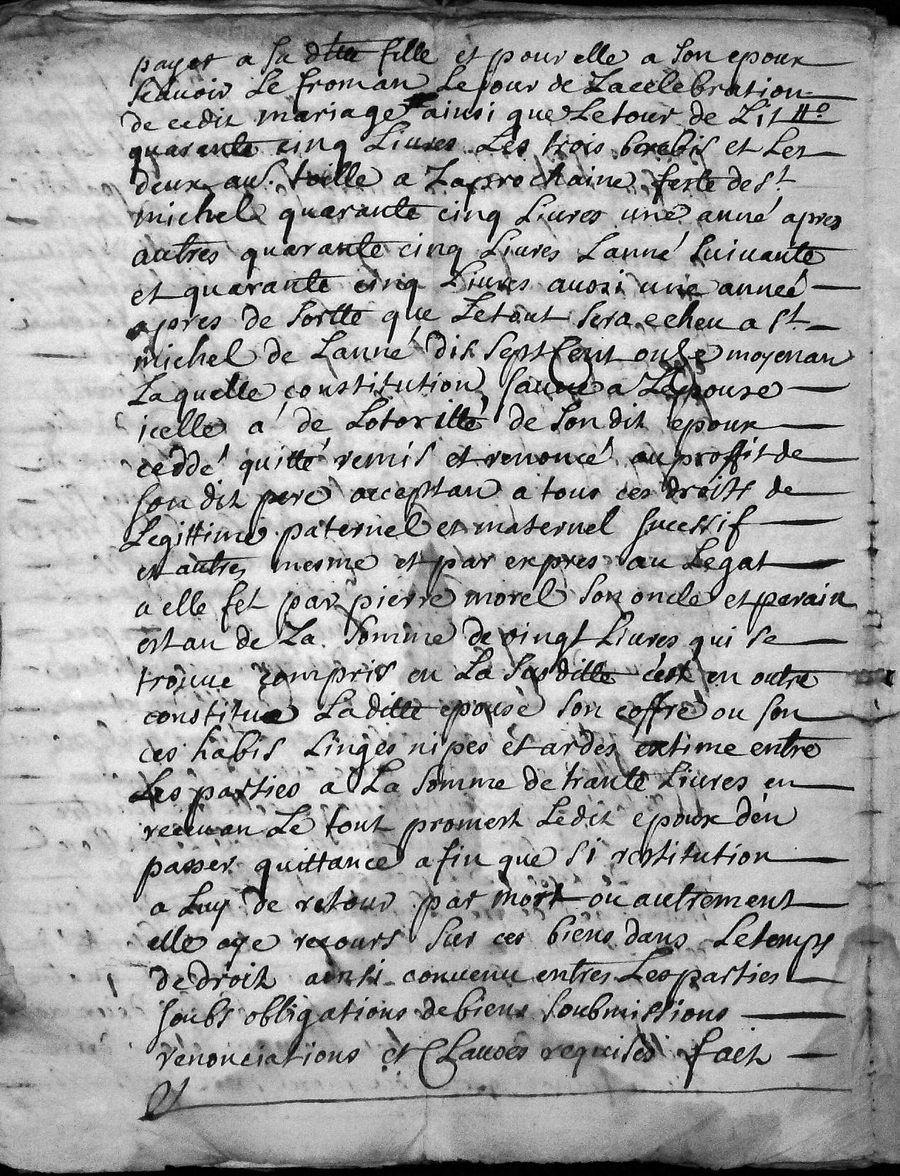 payer a sa ditte fille et pour elle a son epoux
scauoir Le froman Le jour de La celebration
de cedit mariage ainsi que Le tour de Lit #o
quarante cinq Liures Les trois brebis et Les
deux au. toille a La prochaine feste de st
michel quarante cinq Liures une anné apres
autres quarante cinq Liures Lanné suiuante
et quarante cinq Liures aussi une anneé
apres de sortte que Le tout sera echeu a st
michel de Lanné dix sept cent onse moyenan
Laquelle constitution faitte a Lepouse
icelle a de Lotoritté de son dit epoux
ceddé quitté remis et renoncé au proffit de
son dit pere acceptan a tous ces droits de
Legittime paternel et maternel sucessif
et autres mesme et par expres au Legat
a elle fet par pierre morel son oncle et parain
estan de La somme de vingt Liures qui se
trouue compris en La susditte cest en outre
constitue Laditte epouse son coffre ou son
ces habis Linges nipes et ardes extime entre
Les parties a La somme de trante Liures en
receuan Le tout promest Ledit epoux den
passer quittance afin que si restitution
a Luy de retour par mort ou autrement
elle aye recours sur ces biens dans Le temps
de droit ainsi convenu entres Les parties
soubs obligations de biens soubmissions
renonciations et Clauses requises fait
et